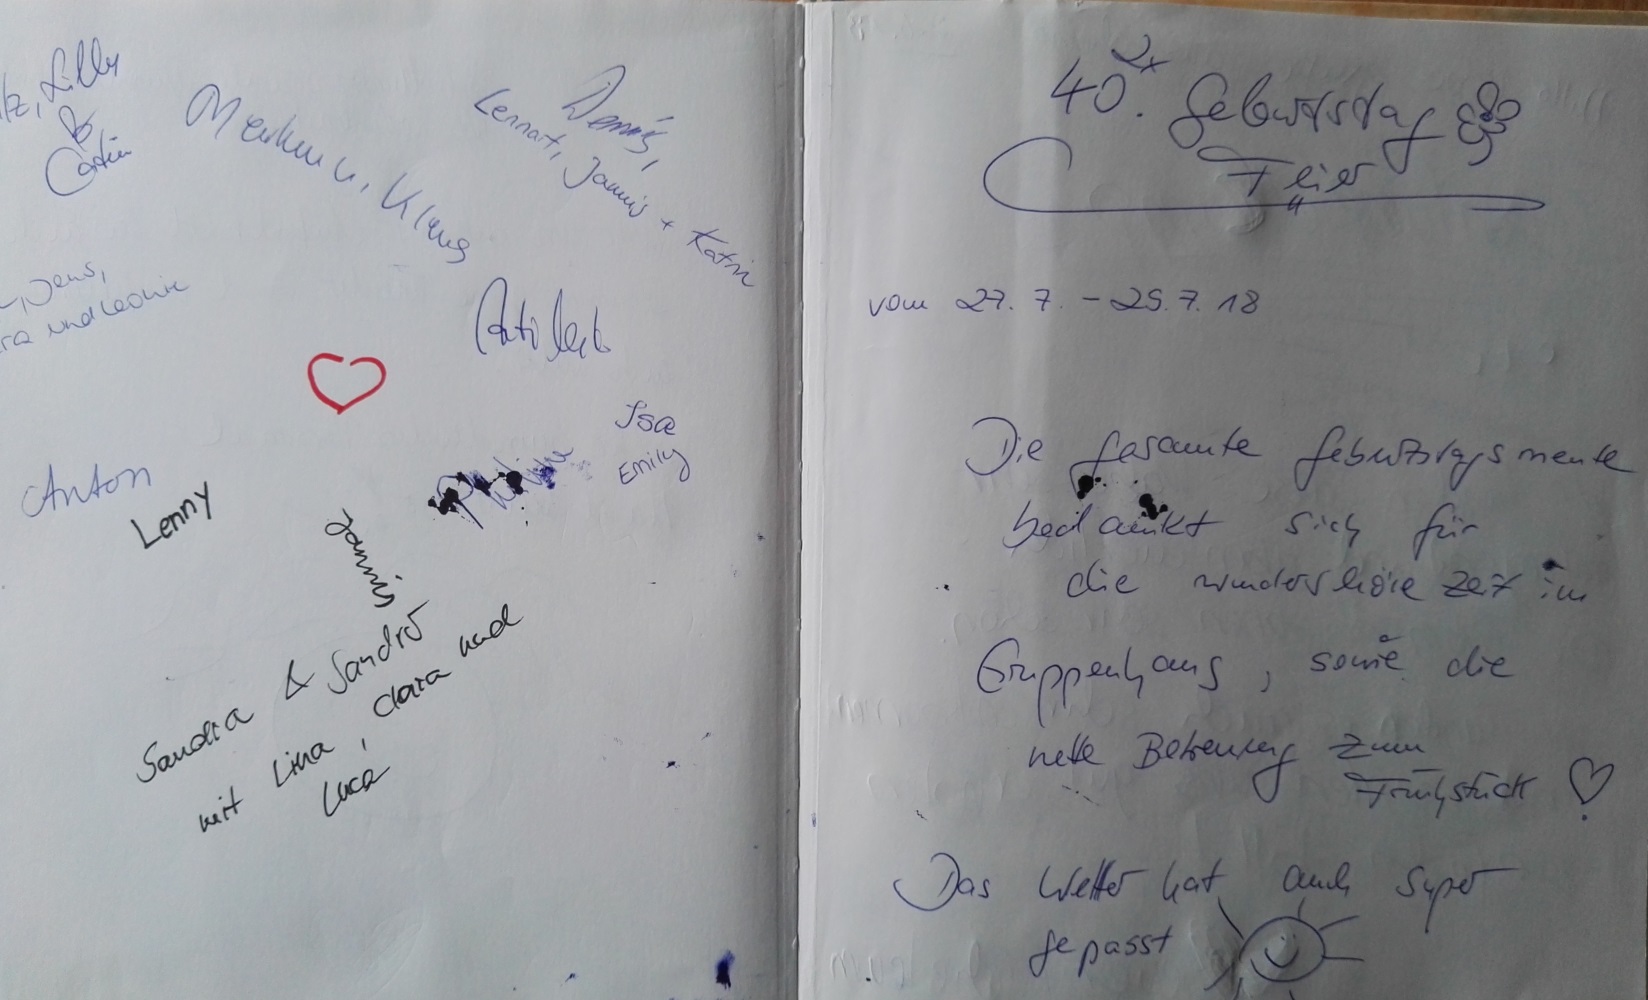 Lilly
&
Dennis,
Lennart, Jannis + Katrin
Klaus
Jens,
und Leonie
Isa
Emily
Anton
Lenny
Jannis
Sandra & Sandro
mit Lina, Clara und
Luca
2x
40. Geburtstag
Feier
vom 27. 7. - 29. 7. 18
Die gesamte Geburtstagsmeute
bedankt sich für
die wunderschöne Zeit im
Gruppenhaus, sowie die
nette Betreuung zum
Frühstück
Das Wetter hat auch super
gepasst